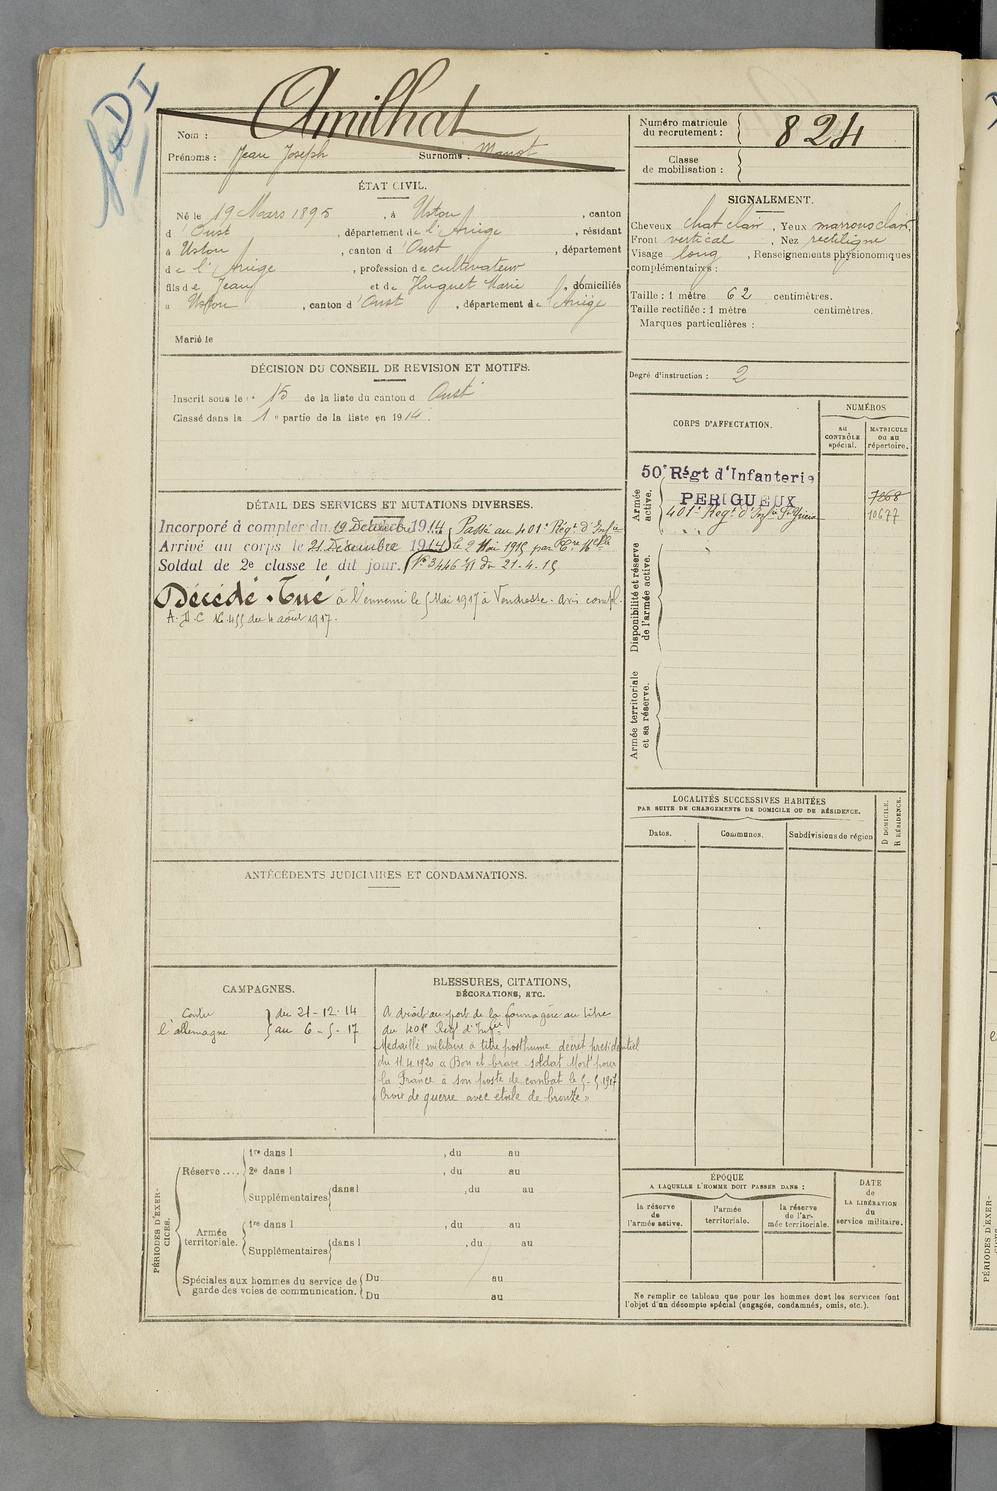 Amilhat
Nom :
Prénoms : Jean Joseph Surnoms : Manot
Numéro matricule du recrutement : 824
Classe de mobilisation :
ÉTAT CIVIL.
Né le 19 Mars 1895, à Ustou, canton
d'Oust, département de l'Ariège, résidant
à Ustou, canton d'Oust, département
de l'Ariège, profession de cultivateur
fils de Jean et de Huguet Marie, domiciliés
à Ustou, canton d'Oust, département de l'Ariège
Marié le
SIGNALEMENT.
Cheveux chat clair, Yeux marrons clair,
Front vertical, Nez rectiligne
Visage long, Renseignements physionomiques
complémentaires :
Taille : 1 mètre 62 centimètres.
Taille rectifiée : 1 mètre centimètres.
Marques particulières :
Degré d'instruction : 2
DÉCISION DU CONSEIL DE REVISION ET MOTIFS.
Inscrit sous le n° 15 de la liste du canton d Oust
Classé dans la 1e partie de la liste en 1914.
CORPS D'AFFECTATION.
NUMÉROS
au CONTRÔLE spécial.
MATRICULE ou au répertoire.
Armée active.
50e Régt d'Infanterie
PERIGUEUX
7268
401e Régt d'Infie
10677
Disponibilité et réserve de l'armée active.
Armée territoriale et sa réserve.
DÉTAIL DES SERVICES ET MUTATIONS DIVERSES.
Incorporé à compter du 19 Décembre 1914 Passé au 401e Régt d'Infie
Arrivé au corps le 21 Décembre 1914 le 2 Mai 1915 par
Soldat de 2e classe le dit jour. No 3446 du 21-4-15
Décédé. Tué à l'ennemi le 5 Mai 1917 à Vendresse. avis
du 4 août 1917.
LOCALITÉS SUCCESSIVES HABITÉES
PAR SUITE DE CHANGEMENTS DE DOMICILE OU DE RÉSIDENCE.
Dates. Communes. Subdivisions de région
D DOMICILE.
R RÉSIDENCE.
ANTÉCÉDENTS JUDICIAIRES ET CONDAMNATIONS.
CAMPAGNES.
Contre l'allemagne
du 21-12-14
au 6-5-17
BLESSURES, CITATIONS,
DÉCORATIONS, ETC.
A droit au port de la fourragère au titre
du 401e Regt d'Infie
Médaillé militaire à titre posthume décret présidentiel
du 11.4.1920 « Bon et brave soldat Mort pour
la France à son poste de combat le 5-5 1917
Croix de guerre avec étoile de bronze »
PÉRIODES D'EXERCICES.
Réserve....
1re dans l , du au
2e dans l , du au
Supplémentaires dans l , du au
Armée territoriale.
1re dans l , du au
Supplémentaires dans l , du au
Spéciales aux hommes du service de garde des voies de communication.
Du au
Du au
ÉPOQUE
A LAQUELLE L'HOMME DOIT PASSER DANS :
la réserve de l'armée active.
l'armée territoriale.
la réserve de l'armée territoriale.
DATE de LA LIBÉRATION du service militaire.
Ne remplir ce tableau que pour les hommes dont les services font
l'objet d'un décompte spécial (engagés, condamnés, omis, etc.).
PÉRIODES D'EXER-